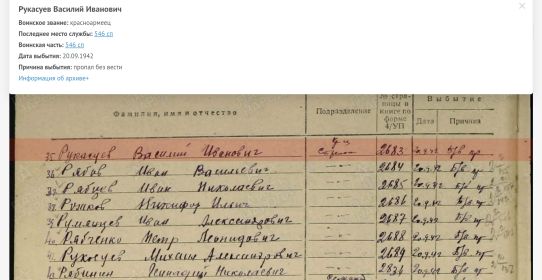 Рукасуев Василий Иванович
Воинское звание: красноармеец
Последнее место службы: 546 сп
Воинская часть: 546 сп
Дата выбытия: 20.09.1942
Причина выбытия: пропал без вести
Информация об архиве+
Фамилия, имя и отчество Подразделение № страницы в книге по форме 4/УП Выбытие
Дата Причина
35 Рукасуев Василий Иванович 2683 20.9.42 б/в пр
36 Рябов Иван Васильевич 2684 20.9.42 б/в пр
Рябцев Иван Николаевич 2685 20.9.42 б/в пр
Рыжков Никифор Ильич 2686 20.9.42 б/в пр
39 Румянцев Иван Александрович 2687 20.9.42 б/в пр
40 Рябченко Петр Леонидович 2688 20.9.42 б/в пр
41 Михаил Александрович 2689 20.9.42 б/в пр
Рябинин Геннадий Николаевич